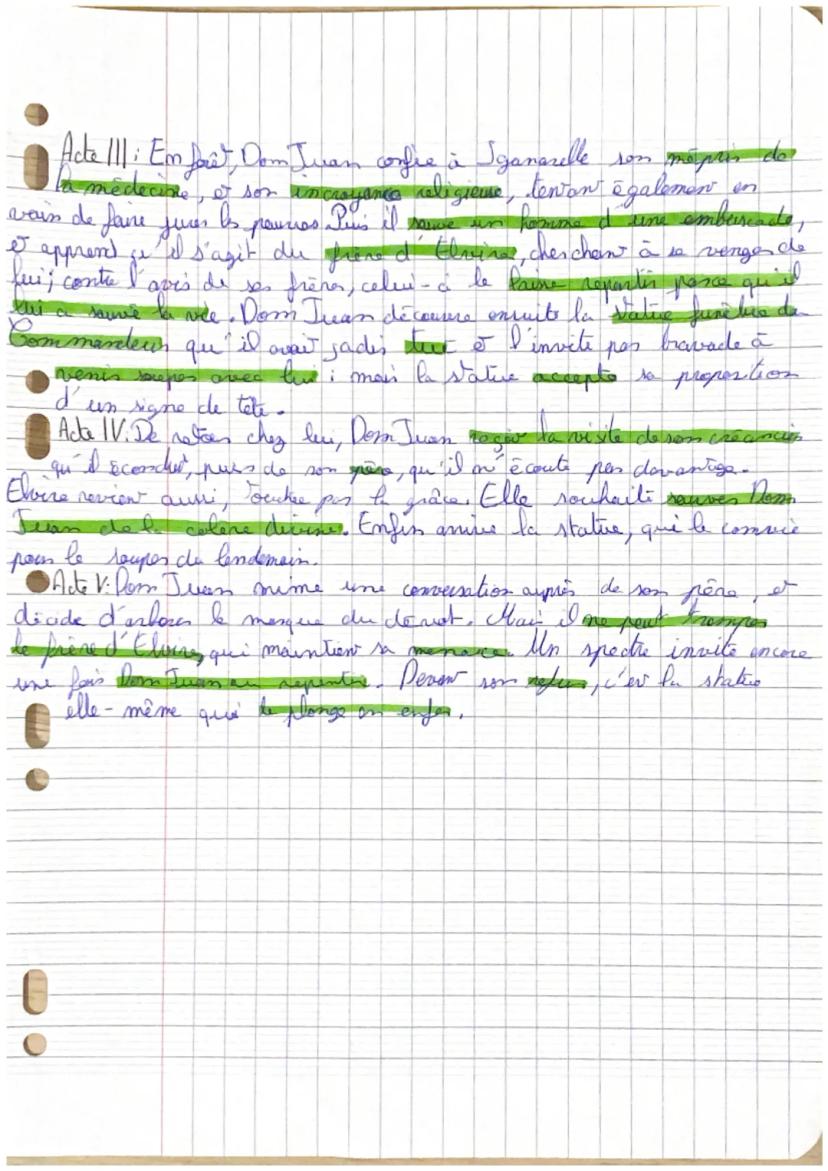 Acte III : En forêt, Dom Juan confie à Sganarelle son mépris de
la médecine, et son incroyance religieuse, tenant également en
vain de faire jurer les pauvres. Puis il sauve un homme d'une embuscade,
et apprend qu'il s'agit du frère d'Elvire, cherchant à se venger de
lui ; contre l'avis de ses frères, celui-ci le laisse repartir parce qu'il
lui a sauvé la vie. Dom Juan découvre ensuite la statue funèbre du
Commandeur qu'il avait jadis tué et l'invite par bravade à
venir souper avec lui : mais la statue accepte sa proposition
d'un signe de tête.
Acte IV : De retour chez lui, Dom Juan reçoit la visite de son créancier
qu'il éconduit, puis de son père, qu'il n'écoute pas davantage.
Elvire revient aussi, touchée par la grâce. Elle souhaite sauver Dom
Juan de la colère divine. Enfin arrive la statue, qui le convie
pour le souper du lendemain.
Acte V : Dom Juan mime une conversation auprès de son père, et
décide d'arborer le masque du dévot. Mais il ne peut tromper
le frère d'Elvire, qui maintient sa menace. Un spectre invite encore
une fois Dom Juan au repentir. Devant son refus, c'est la statue
elle-même qui le plonge en enfer.